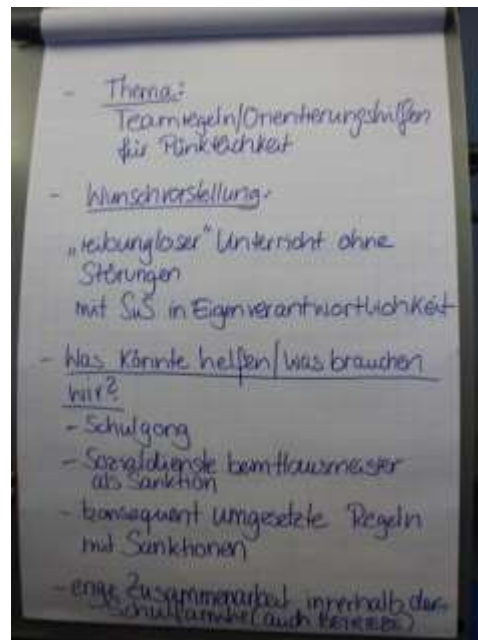 - Thema:
Teamregeln/Orientierungshilfen
für Pünktlichkeit
- Wunschvorstellung:
„reibungloser" Unterricht ohne
Störungen
mit SuS in Eigenverantwortlichkeit
- Was könnte helfen/was brauchen
wir?
- Schulgong
- Sozialdienste beim Hausmeister
als Sanktion
- konsequent umgesetzte Regeln
mit Sanktionen
- enge Zusammenarbeit innerhalb der
(auch BETRIEBE)